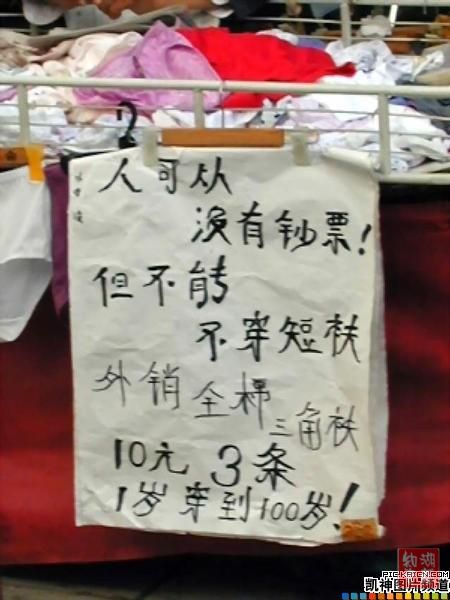 人可从
没有钞票!
但不能
不穿短衭
外销全棉
三角衭
10元 3条
1岁穿到100岁!
凯神图片频道